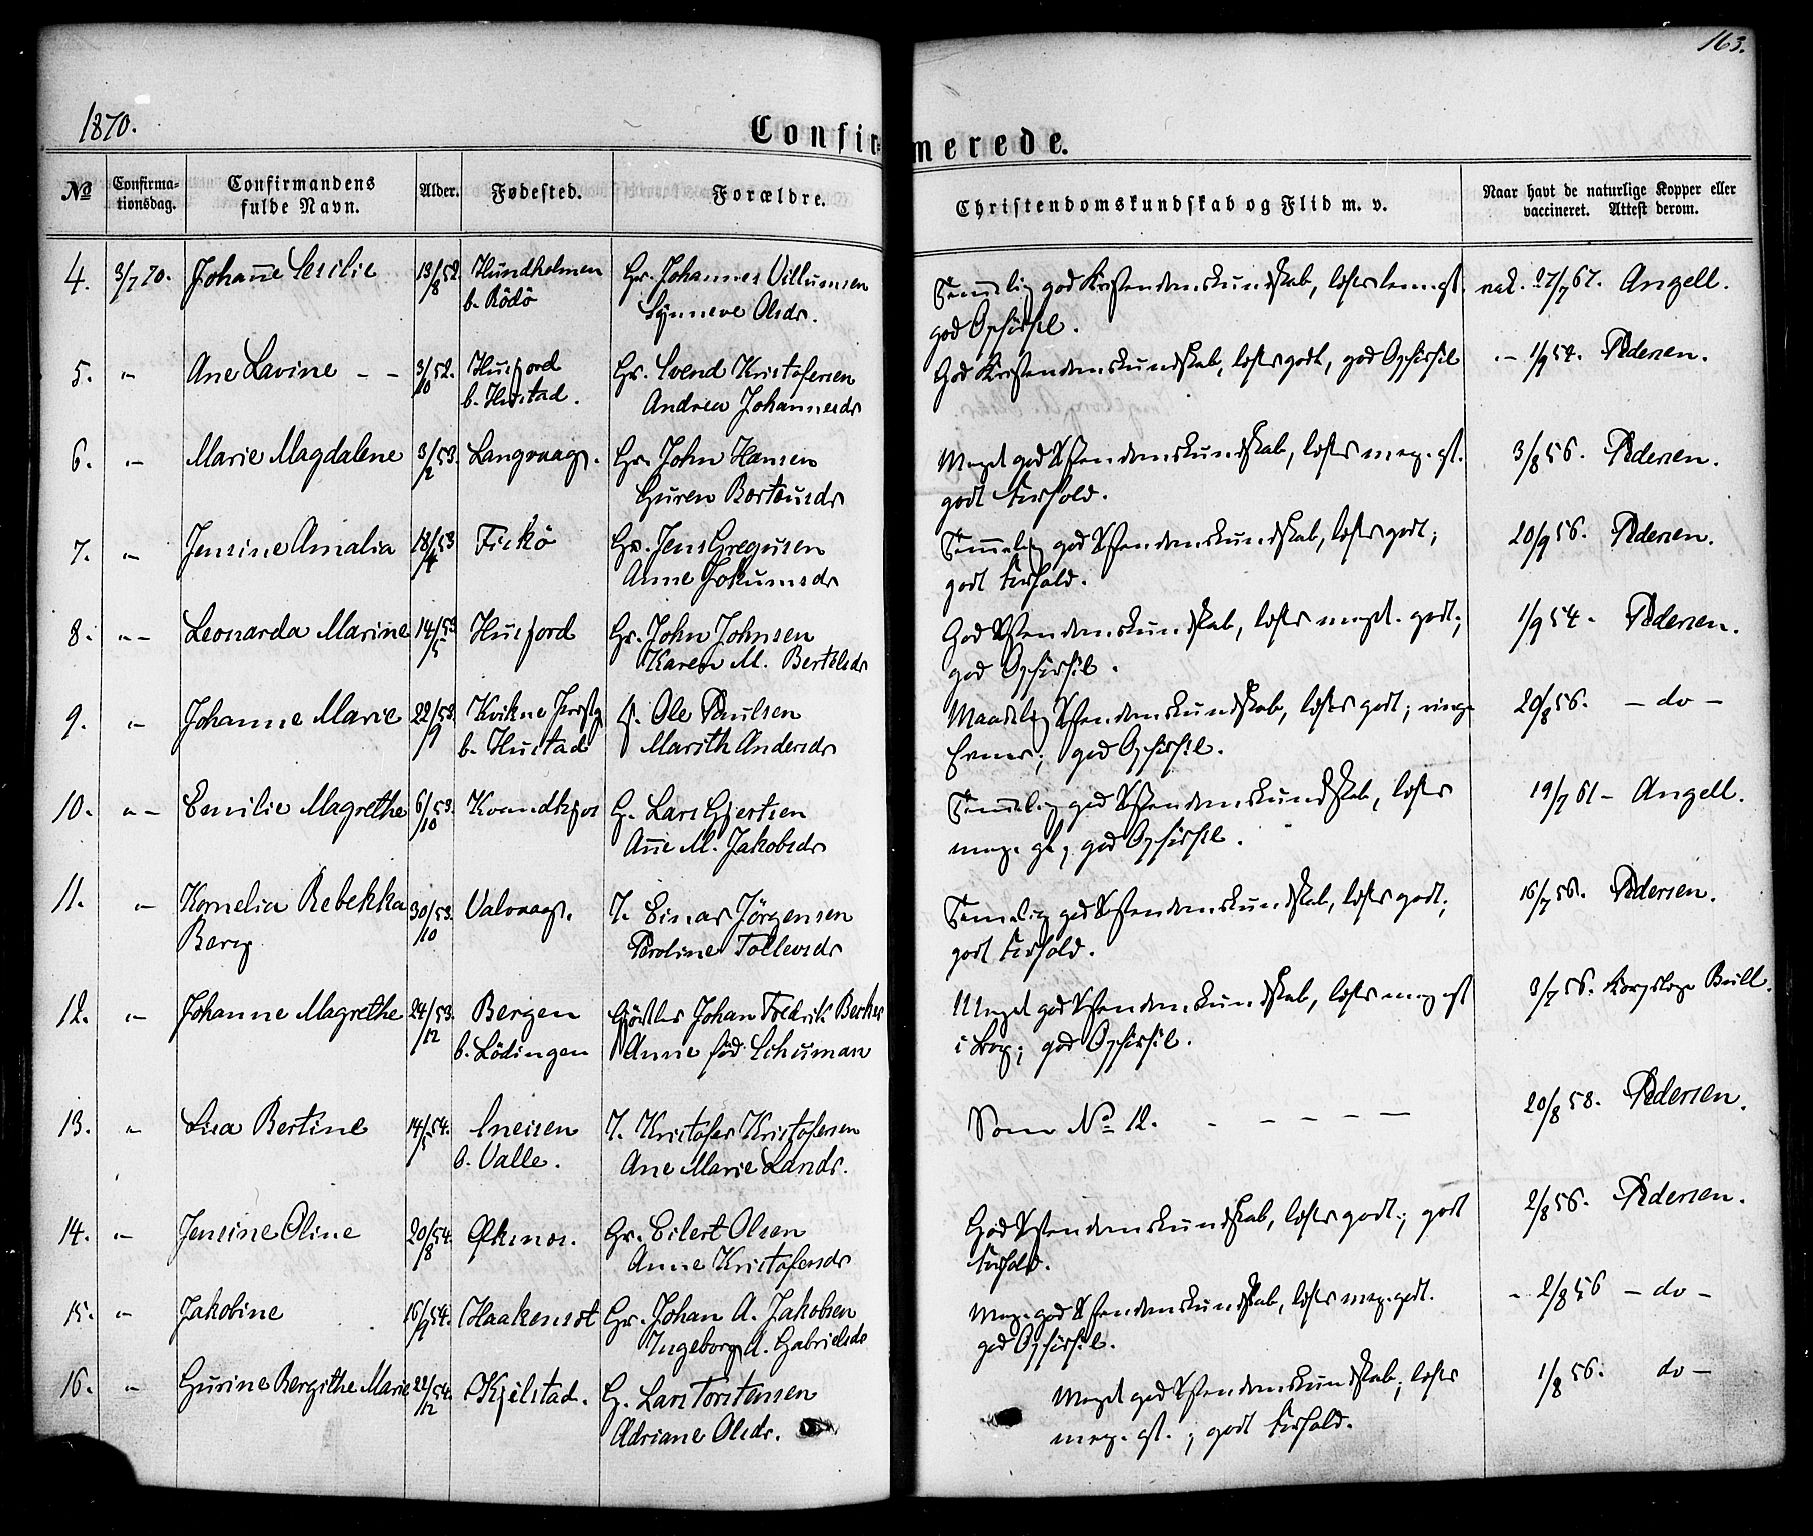 163.
1870.
Confirmerede.
№ Confirmationsdag. Confirmandens fulde Navn. Alder. Fødested. Forældre. Christendomskundskab og Flid m. v. Naar havt de naturlige Kopper eller vaccineret. Attest derom.
4. 3/7 70. Johanne Cecilie 13/8 52. Hundholmen Gr. Johannes Villumsen Temmelig god Kristendomskundskab, læser temm. gt. vak. 27/7 67. Angell.
b. Rödö Synneve Olsdr. god Opförsel.
5. " Ane Lavine - - 3/10 52. Husfjord Gr. Svend Kristofersen God Kristendomskundskab, læser godt, god Opförsel - 1/9 54. Pedersen.
b. Hustad. Andrea Johannesdr
6. " Marie Magdalene 3/2 53. Langvaag. Gr. John Hansen Meget god Xstendomskundskab, læser meg. gt. 3/8 56. Pedersen.
Guren Bortensdr godt Forhold.
7. " Jensine Amalia 18/4 53 Fickö Gr. Jens Gregusen Temmelig god Xstendomskundskab, læser godt; 20/9 56. Pedersen.
Anne Jokumsdr godt Forhold.
8. " Leonarda Marine 14/5 53 Husfjord Gr. John Johnsen God Xstendomskundskab, læser meget godt; 1/9 54. Pedersen.
Karen M. Bertelsdr god Opförsel.
9. " Johanne Marie 22/9 53. Kvikne Præstg. Ole Paulsen Maadelig Xstendomskundskab, læser godt; ringe 20/8 56. - do -
b. Hustad Marith Andersdr Evner; god Opförsel.
10. " Emilie Magrethe 6/10 53. Kvandkjos G. Lars Gjertsen Temmelig god Xstendomskundskab, læser 19/7 61 - Angell.
Anne M. Jakobsdr meg. gt; god Opförsel.
11. " Kornelia Rebekka 30/10 53. Valvaag. I. Einar Jörgensen Temmelig god Xstendomskundskab, læser godt; 16/7 56. Pedersen.
Berg Peroline Tollevsdr godt Forhold.
12. " Johanne Magrethe 24/12 53. Bergen Gjörtler Johan Fredrik Becker Meget god Xstendomskundskab, læser meg gt 3/7 56. Korpslæge Bull.
b. Lödingen Anne föd Schuman i Bog; god Opförsel.
13. " Lisa Bertine 14/5 54. Sneisen I. Kristofer Kristofersen Som No 12. - - - - 20/8 58. Pedersen.
b. Valle. Ane Marie Larsdr.
14. " Jensine Oline 20/8 54. Öksnes. Gr. Eilert Olsen God Xstendomskundskab, læser godt; godt 2/8 56. Pedersen.
Anne Kristofersdr Forhold.
15. " Jakobine 16/9 54. Haakensöt Gr. Johan A. Jakobsen Meg. god Xstendomskundskab, læser meg. godt. - 2/8 56 - do -
Ingeborg A. Gabrielsdr god Opförsel.
16. " Gurine Bergithe Marie 22/12 54. Kjelstad. G. Lars Torstensen Meget god Xstendomskundskab; læser 1/8 56. do -
Adriane Olsdr. meg. gt. ; godt Forhold.